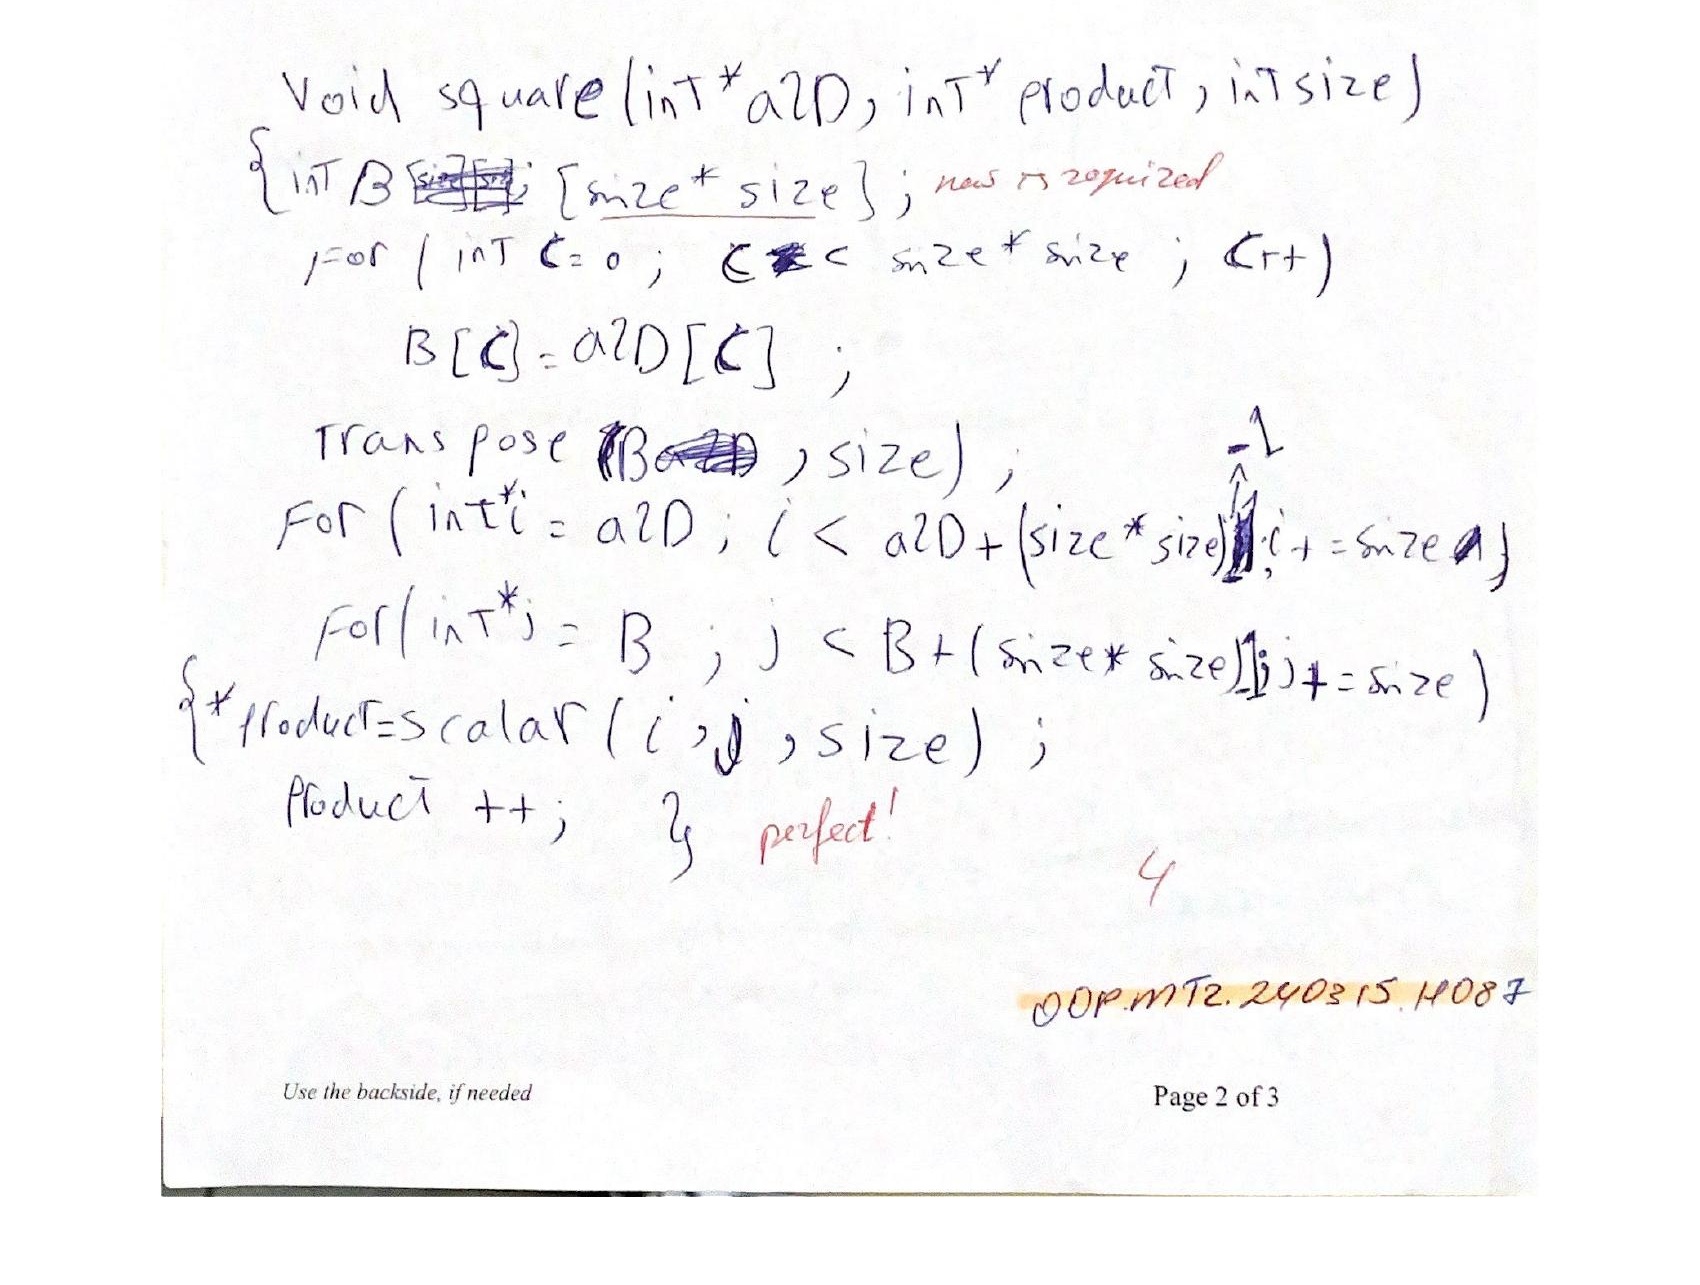 Void square (int* a2D, int* product, int size)
{ int B [size * size]; new is required
For (int C=0; C < size * size; C++)
B[C] = a2D[C] ;
Transpose (B , size) ;
-1
For (int* i = a2D ; i < a2D + (size * size) ; i += size)
For (int* j = B ; j < B + (size * size) ; j += size)
{ *product = scalar (i , j , size) ;
Product ++ ; }
perfect!
4
OOP.MT2.240315.H087
Use the backside, if needed
Page 2 of 3